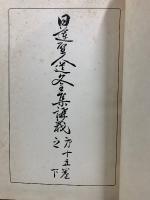 日蓮聖人遺文全集講義
第十五巻
之下